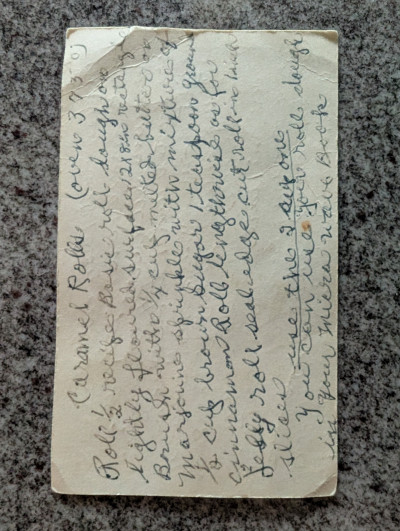 Caramel Rolls (oven 375°)
Roll ½ recipe Basic roll dough on
lightly floured surface, 12x8 in rectangle
Brush with ¼ cup melted butter or
Marjarine sprinkle with mixture of
½ cup brown sugar 1 teaspoon ground
cinnamon Roll lengthwise as for
Jelly roll seal edge cut roll in inch
slices use the 2 sugone
You can use your roll dough
in Your Micra wave Book